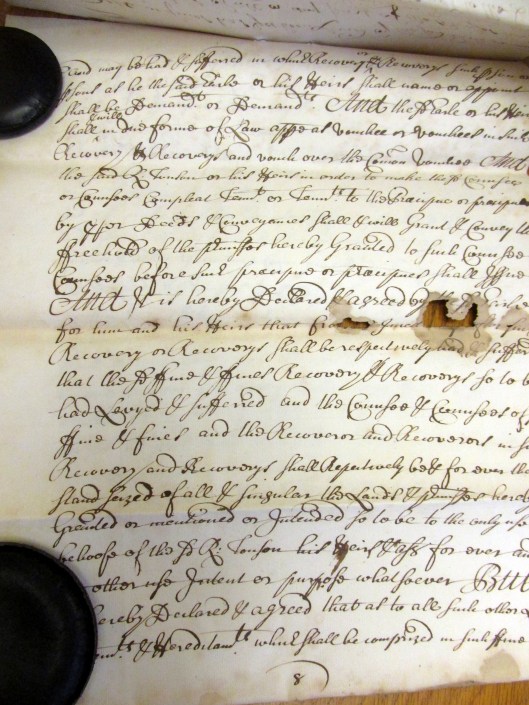 and may be had & suffered in which Recovery or Recoverys such person
psons as he the said Earle or his Heirs shall name or appoint
shall be Demandt or Demandts And the sd Earle or his Heirs
shall & will in due forme of Law appeas vouchee or vouchees in such
Recovery & Recoverys and vouch over the Comon Vouchee And
the said R Tonson or his Heirs in order to make the sd Connsee
or Connsees Compleat Tent or Tents to the Præcipe or præcipes
by pper Deeds & Conveyances shall & will Grant & Convey the
ffreehold of the pmisses hereby Granted to such Connsee
Connsees before such præcipe or præcipes shall Issue
And it is hereby Declared & agreed by the
for him and his Heirs that
Recovery or Recoverys shall be respectively had & suffered
that the sd ffine & ffines Recovery & Recoverys so to be
had Levyed & suffered and the Connsee & Connsees of
ffine & fines and the Recoveror and Recoverors in such
Recovery and Recoverys shall Respectively be & for ever the
stand seized of all & singular the Lands & pmisses hereby
Granted or mentioned or Intended so to be to the only use
behoofe of the sd R: Tonson his Heirs & Ass for ever and
other use Intent or purpose whatsoever But
hereby Declared & agreed that as to all such other
& Hereditamts which shall be comprized in such ffine
8